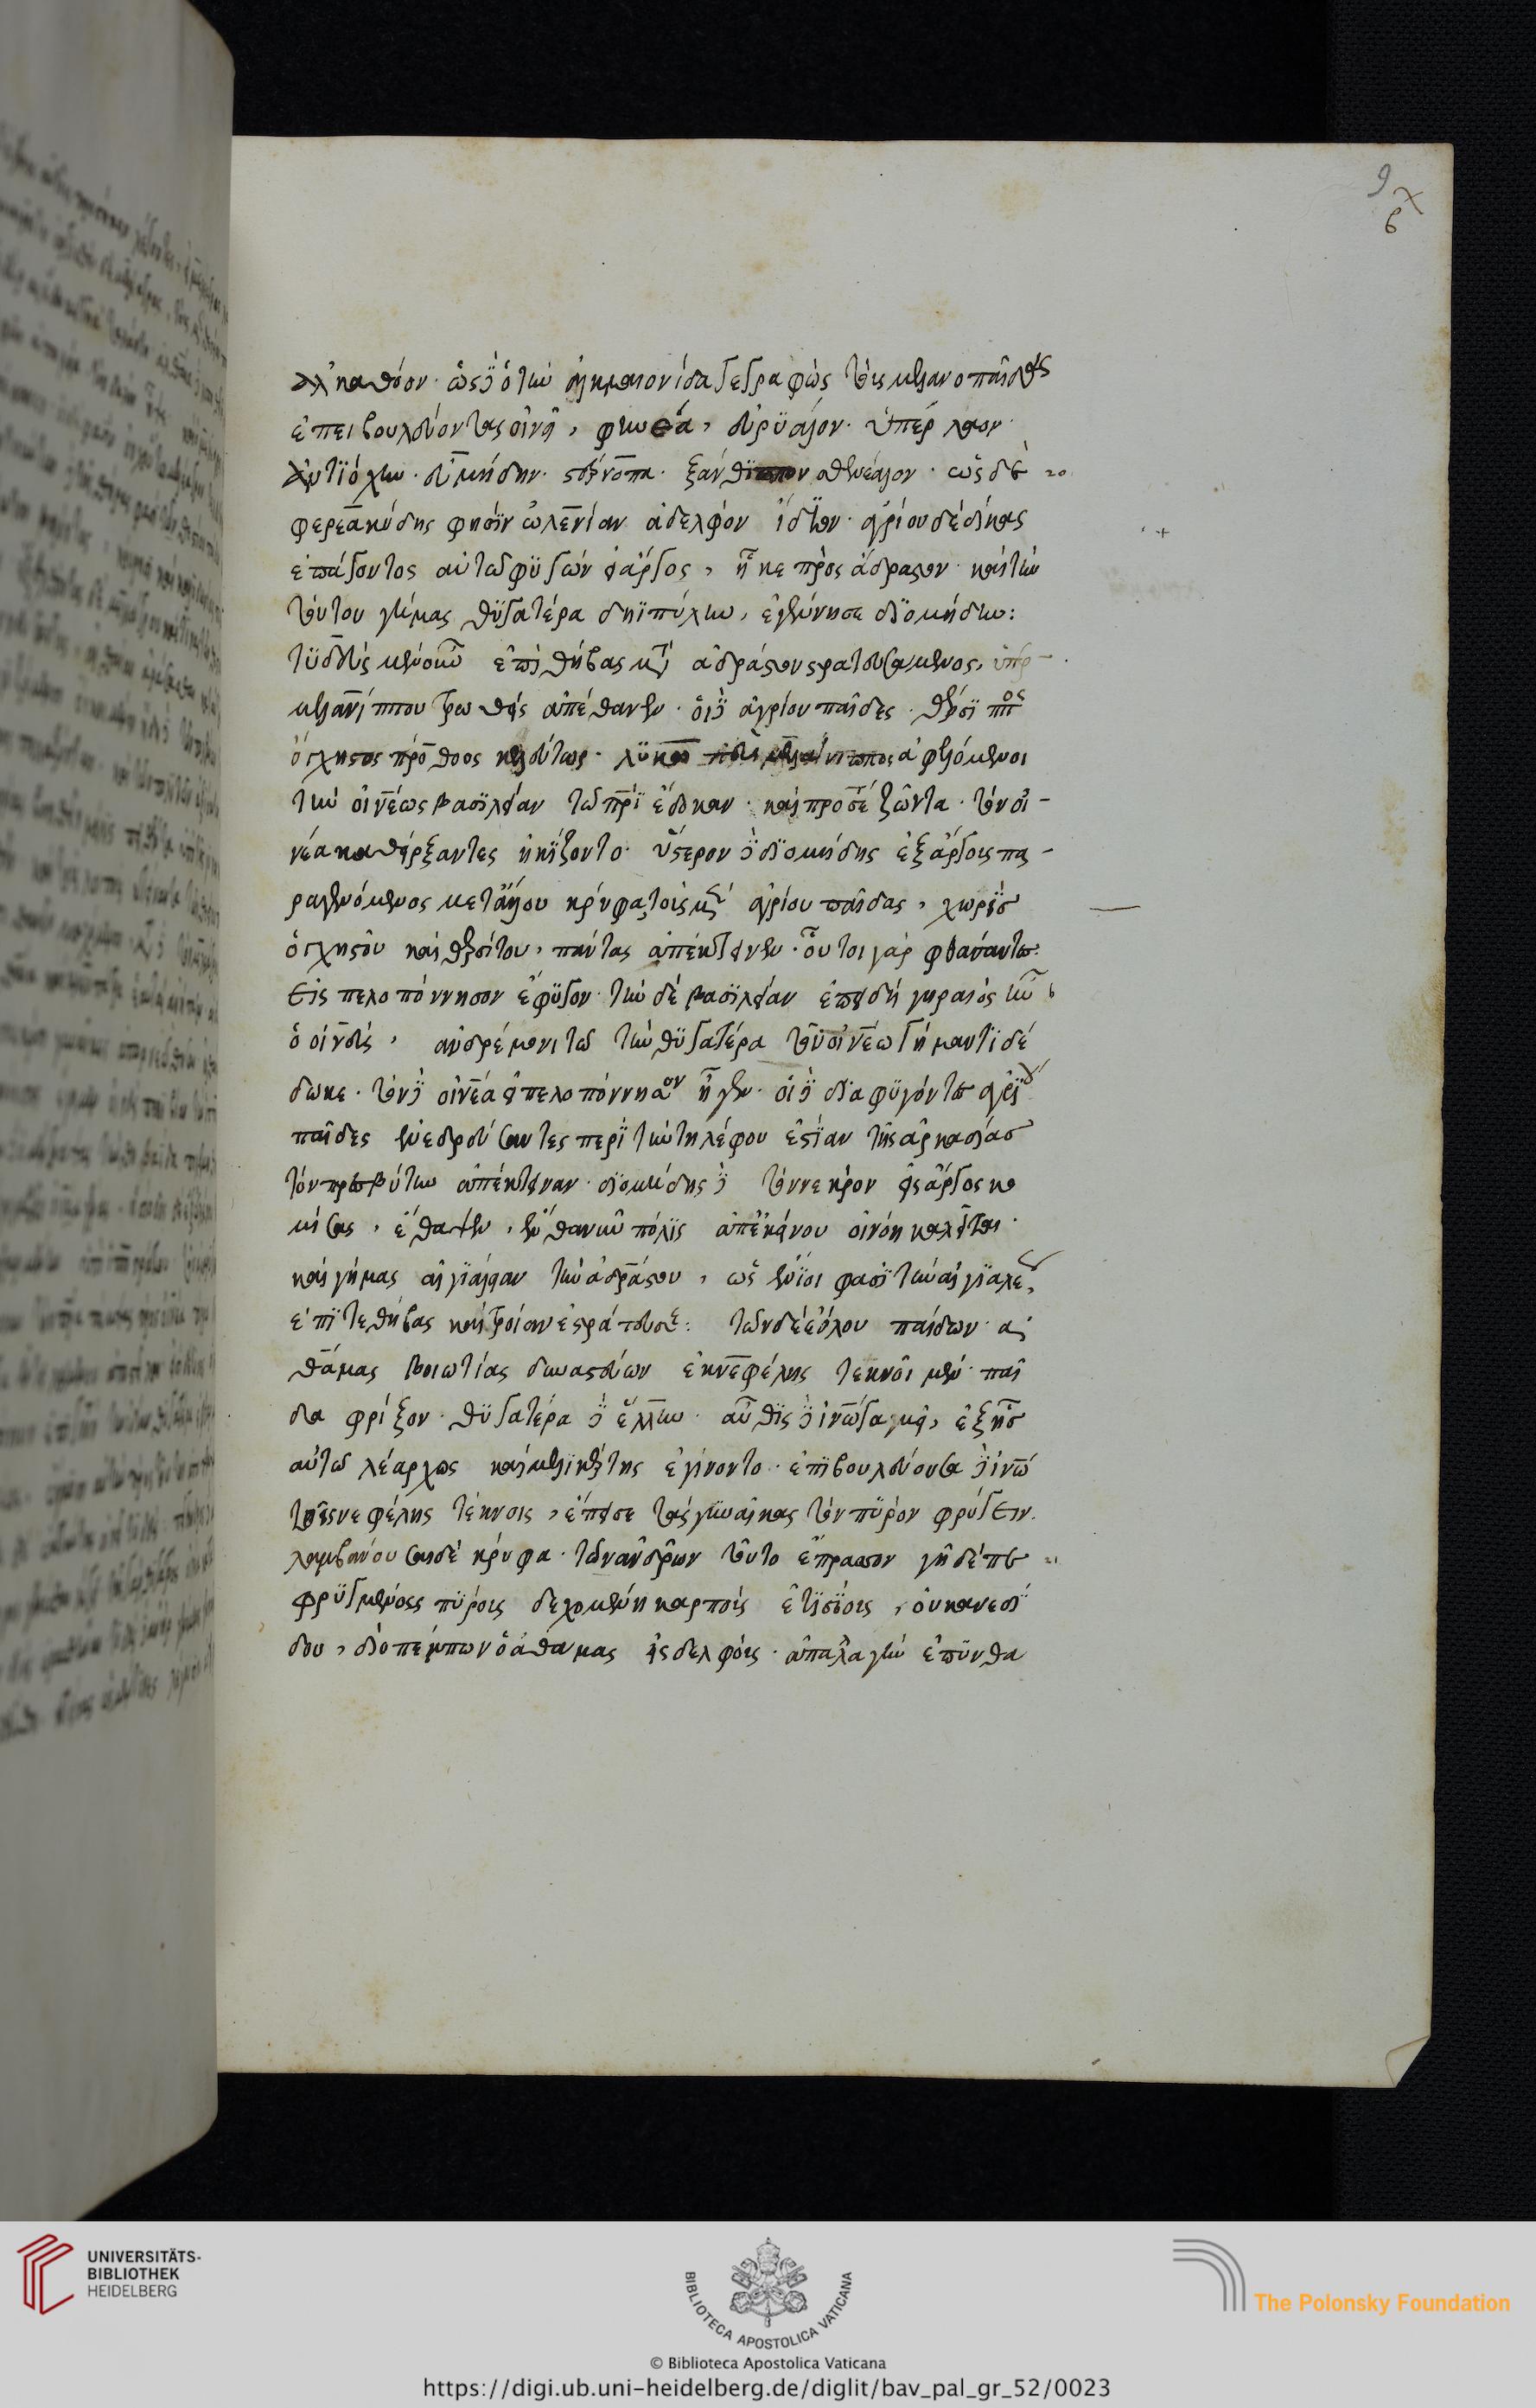 9
6
ἀλκάθοον· ὡς δὲ ὁ τὴν ἀλκμαιονίδα γεγραφὼς τοὺς μέλανος παῖδας
ἐπειβουλεύοντας οἰνεῖ, φηνέα, εὐρύαλον· ὑπέρλαον·
ἀντίοχον· εὐμήδην· στέρνοπα· ξάνθιππον σθενέλαον· ὡς δὲ
φερεκύδης φησὶν ὠλενίαν ἀδελφὸν ἴδιον· ἀγρίου δὲ δίκας
ἐπάγοντος αὐτῷ φυγὼν εἰς ἄργος, ἧκε πρὸς ἄδραστον· καὶ τὴν
τούτου γήμας θυγατέρα δηιπύλην, ἐγέννησε διομήδην:
τυδεὺς μὲν οὖν ἐπὶ θήβας μετὰ ἀδράστου στρατευσάμενος, ὑπὸ
μελανίππου τρωθεὶς ἀπέθανεν· οἱ δὲ ἀγρίου παῖδες· θερσί
ὀγχηστὸς πρόθοος κελεύτωρ· λυκωπεὺς μελάνιππος ἀφελόμενοι
τὴν οἰνέως βασιλείαν τῷ πρὶ ἔδοκαν· καὶ προσέτι ζῶντα· τὸν οἰ-
νέα καθείρξαντες ἠκίζοντο· ὕστερον δὲ διομήδης ἐξ ἄργους πα-
ραγενόμενος μετ' ἄλλου κρύφα, τοὺς μὲν ἀγρίου παῖδας, χωρὶς
ὀγχηστοῦ καὶ θερσίτου, πάντας ἀπέκτεινεν· οὗτοι γὰρ φθάσαντες
εἰς πελοπόννησον ἔφυγον· τὴν δὲ βασιλείαν ἐπειδὴ γηραιὸς ἦν
ὁ οἰνεὺς, ἀνδρέμονι τῷ τὴν θυγατέρα τοῦ οἰνέω γήμαντι δέ
δωκε· τὸν δὲ οἰνέα εἰς πελοπόννησον ἦγεν· οἱ δὲ διαφυγόντες ἀγρίου
παῖδες ἐνεδρεύσαντες περὶ τὴν τηλέφου ἑστίαν τῆς ἀρκαδίας
τὸν πρεσβύτην ἀπέκτειναν· διομήδης δὲ τὸν νεκρὸν εἰς ἄργος κο
μίσας, ἔθαψεν, ἔνθα νῦν πόλις ἀπ' ἐκείνου οἰνόη καλεῖται·
καὶ γήμας αἰγιάλειαν τὴν ἀδράστου, ὡς ἔνιοι φασὶ τὴν αἰγιαλέως,
ἐπί τε θήβας καὶ τροίαν ἐστράτευσε: τῶν δὲ ἐόλου παίδων ἀ
θάμας βοιωτίας δυναστεύων ἐκ νεφέλης τεκνοῖ μὲν παῖ
δα φρίξον· θυγατέρα δὲ ἕλλην· αὖθις δὲ ἰνὼ γαμεῖ, ἐξ ἧς
αὐτῷ λέαρχος καὶ μελικέρτης ἐγένοντο· ἐπιβουλεύουσα δὲ ἰνὼ
τοῖς νεφέλης τέκνοις, ἔπεισε τὰς γυναῖκας τὸν πυρὸν φρύγειν·
λαμβάνουσαι δὲ κρύφα τῶν ἀνδρῶν τοῦτο ἔπρασσον γῆ δὲ πε
φρυγμένους πυροὺς δεχομένη καρποὺς ἐτησίους, οὐκ ἀνεδί
δου, διο πέμπων ὁ ἀθάμας εἰς δελφοὺς· ἀπαλλαγὴν ἐπυνθά
UNIVERSITÄTS-
BIBLIOTHEK
HEIDELBERG
BIBLIOTECA APOSTOLICA VATICANA
© Biblioteca Apostolica Vaticana
The Polonsky Foundation
https://digi.ub.uni-heidelberg.de/diglit/bav_pal_gr_52/0023